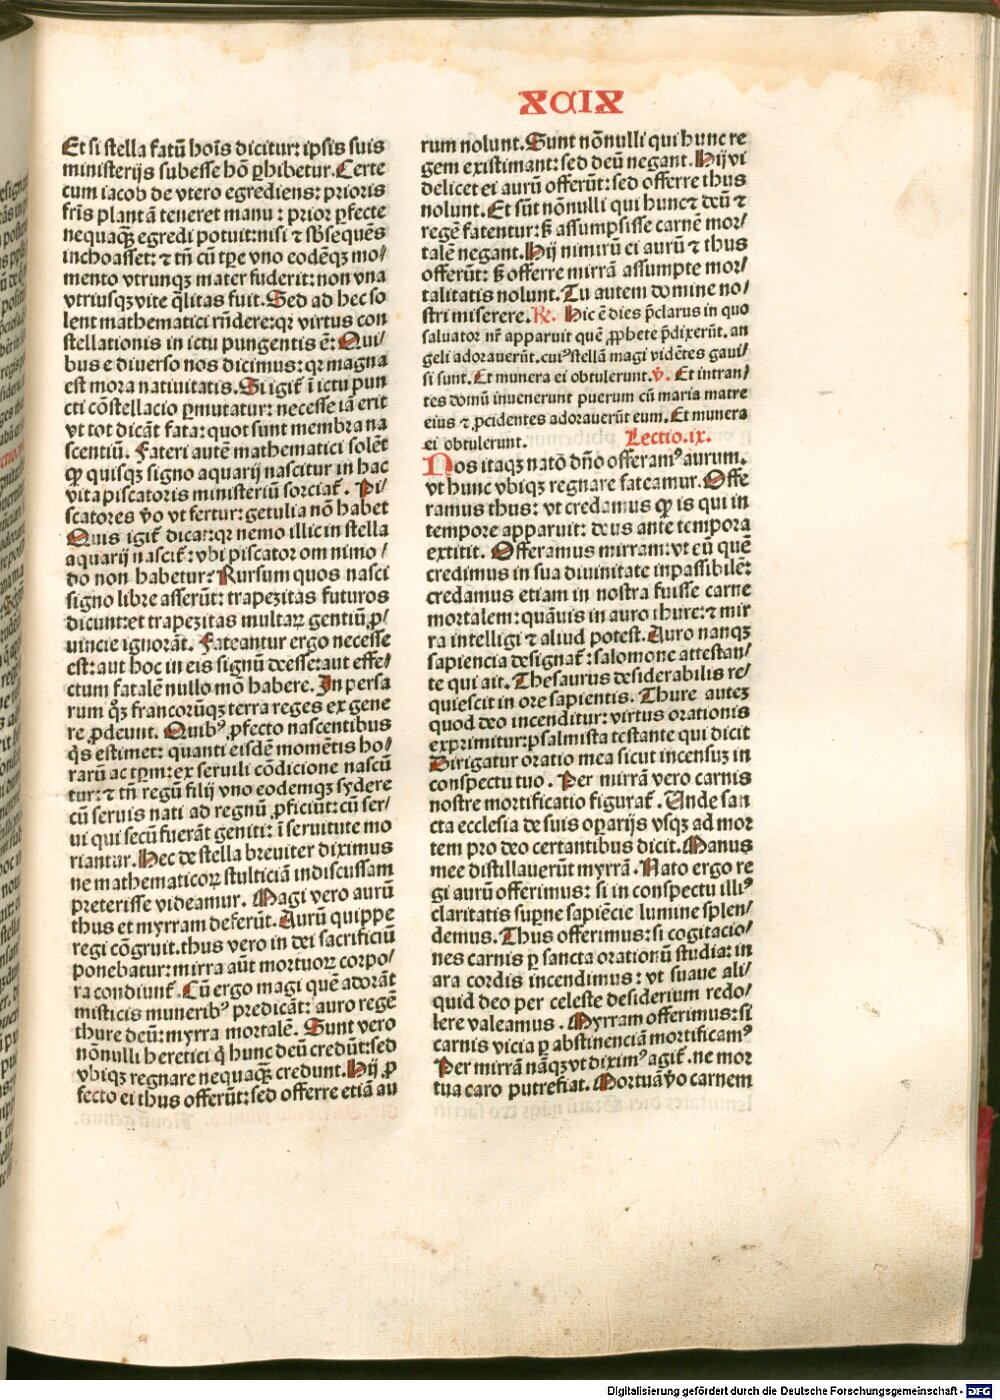 XCIX
Et si stella fatū hoīs dicitur: ipsis suis
ministerijs subesse hō ꝓhibetur. Certe
cum iacob de vtero egrediens: prioris
fr̄is plantā teneret manu: prior ꝑfecte
nequaꝙ̄ egredi potuit: nisi ⁊ sb̄sequēs
inchoasset: ⁊ tn̄ cū tꝑe vno eodēqꝫ mo/
mento vtrunqꝫ mater fuderit: non vna
vtriusqꝫ vite q̄litas fuit. Sed ad hec so
lent mathematici rn̄dere: qꝛ virtus con
stellationis in ictu pungentis ē: Qui/
bus e diverso nos dicimus: qꝛ magna
est mora natiuitatis. Si igit̄ ī ictu pun
cti cōstellacio ꝑmutatur: necesse iā erit
vt tot dicāt fata: quot sunt membra na
scentiū. Fateri autē mathematici solēt
ꝙ quisqꝫ signo aquarij nascitur in hac
vita piscatoris ministeriū sorciat̄. Pi/
scatores v̄o vt fertur: getulia nō habet
Quis igit̄ dicat: qꝛ nemo illic in stella
aquarij nascit̄: vbi piscator omnimo/
do non habetur? Rursum quos nasci
signo libre asserūt: trapezitas futuros
dicunt: et trapezitas multaꝝ gentiū ꝓ/
uincie ignorāt. Fateantur ergo necesse
est: aut hoc in eis signū deesse: aut effe/
ctum fatalē nullo mō habere. In persa
rum qꝫ̄ francorūqꝫ terra reges ex gene
re ꝓdeunt. Quibꝰ ꝓfecto nascentibus
q̄s estimet: quanti eisdē momētis ho/
rarū ac tꝑm: ex seruili cōdicione nascū
tur: ⁊ tn̄ regū filij vno eodemqꝫ sydere
cū seruis nati ad regnū ꝓficiūt: cū ser/
ui qui secū fuerāt geniti: ī seruitute mo
riantur. Hec de stella breuiter diximus
ne mathematicoꝝ stulticiā indiscussam
preterisse videamur. Magi vero aurū
thus et myrram deferūt. Aurū quippe
regi cōgruit. thus vero in dei sacrificiū
ponebatur: mirra aūt mortuoꝝ corpo/
ra condiunt̄. Cū ergo magi quē adorāt
misticis muneribꝰ predicāt: auro regē
thure deū: myrra mortalē. Sunt vero
nōnulli heretici q̄ hunc deū credūt: sed
vbiqꝫ regnare nequaꝙ̄ credunt. Hij ꝓ
fecto ei thus offerūt: sed offerre etiā au
rum nolunt. Sunt nōnulli qui hunc re
gem existimant: sed deū negant. Hij vi
delicet ei aurū offerūt: sed offerre thus
nolunt. Et sūt nōnulli qui hunc ⁊ deū ⁊
regē fatentur: sꝫ assumpsisse carnē mor/
talē negant. Hij nimirū ei aurū ⁊ thus
offerūt: sꝫ offerre mirrā assumpte mor/
talitatis nolunt. Tu autem domine no/
stri miserere. ℟. Hic ē dies p̄clarus in quo
saluator nr̄ apparuit quē ꝓphete p̄dixerūt. an
geli adorauerūt. cuiꝰ stellā magi vidētes gaui/
si sunt. Et munera ei obtulerunt. ℣. Et intran/
tes domū inuenerunt puerum cū maria matre
eius ⁊ ꝓcidentes adorauerūt eum. Et munera
ei obtulerunt. Lectio. ix.
Nos itaqꝫ natō dn̄o offeramꝰ aurum.
vt hunc vbiqꝫ regnare fateamur. Offe
ramus thus: vt credamus ꝙ is qui in
tempore apparuit: deus ante tempora
extitit. Offeramus mirram: vt eū quē
credimus in sua diuinitate inpassibilē:
credamus etiam in nostra fuisse carne
mortalem: quāuis in auro thure: ⁊ mir
ra intelligi ⁊ aliud potest. Auro nanqꝫ
sapiencia designat̄: salomone attestan/
te qui ait. Thesaurus desiderabilis re/
quiescit in ore sapientis. Thure auteꝫ
quod deo incenditur: virtus orationis
exprimitur: psalmista testante qui dicit
Dirigatur oratio mea sicut incensuꝫ in
conspectu tuo. Per mirrā vero carnis
nostre mortificatio figurat̄. Unde san
cta ecclesia de suis oꝑarijs vsqꝫ ad mor
tem pro deo certantibus dicit. Manus
mee distillauerūt myrrā. Nato ergo re
gi aurū offerimus: si in conspectu illiꝰ
claritatis suꝑne sapiēcie lumine splen/
demus. Thus offerimus: si cogitacio/
nes carnis ꝑ sancta orationū studia: in
ara cordis incendimus: vt suaue ali/
quid deo per celeste desiderium redo/
lere valeamus. Myrram offerimus: si
carnis vicia ꝑ abstinenciā mortificamꝰ
Per mirrā nāqꝫ vt diximꝰ agit̄. ne mor
tua caro putrefiat. Mortuā v̄o carnem
Digitalisierung gefördert durch die Deutsche Forschungsgemeinschaft - DFG